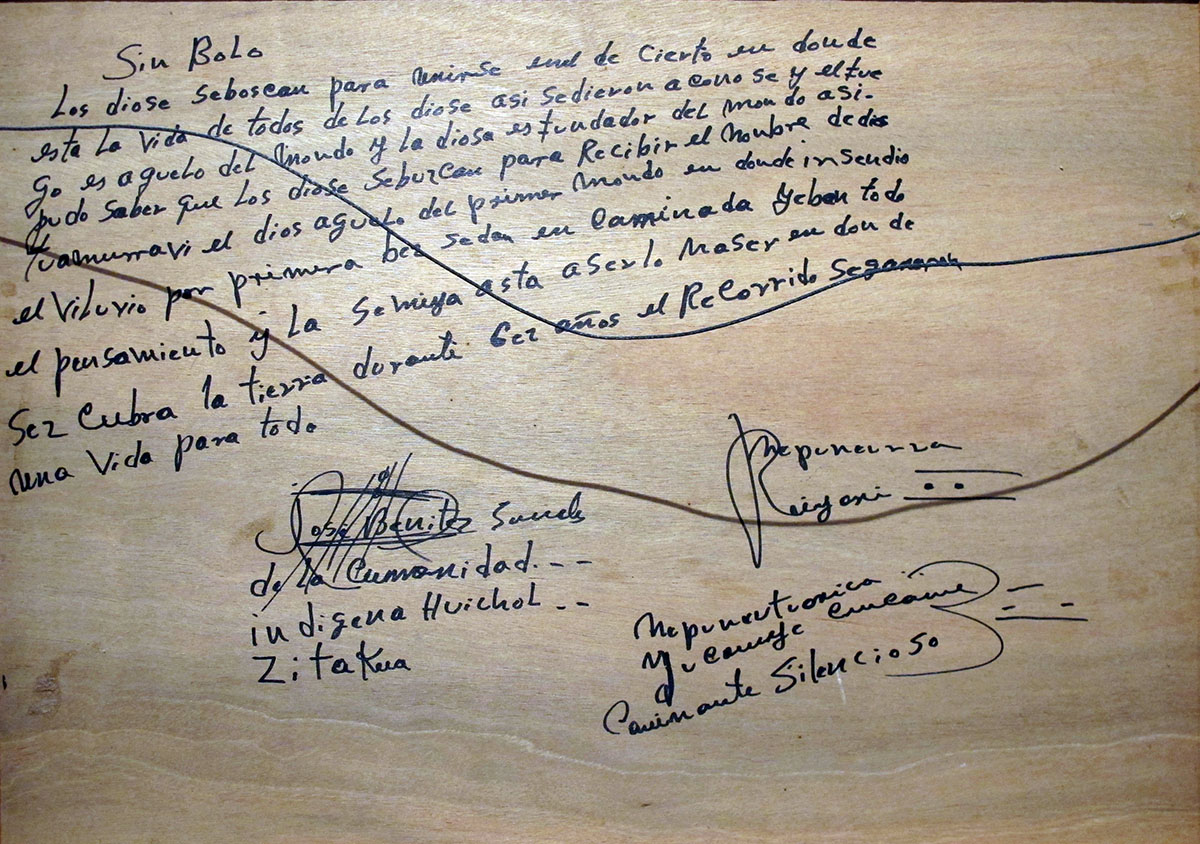 Sin Bolo
Los diose seboscan para unirse enel de cierto en donde
esta la vida de todos de los diose asi sedieron aconose y el fue
go es aguelo del mondo y la diosa es fundador del mondo asi-
pudo saber que los diose seburcan para Recibir el nonbre dedios
el dios aguelo del primer mondo en donde insendio
el viluvio por primera bes sedan en caminada yeban todo
el pensamiento y la semiya asta aserlo naser en don de
sez cubra la tierra durante sez años el Recorrido
una vida para todo
José Benitez
de la Cumonidad. - -
indigena Huichol - -
Zitakua
Caminante Silencioso